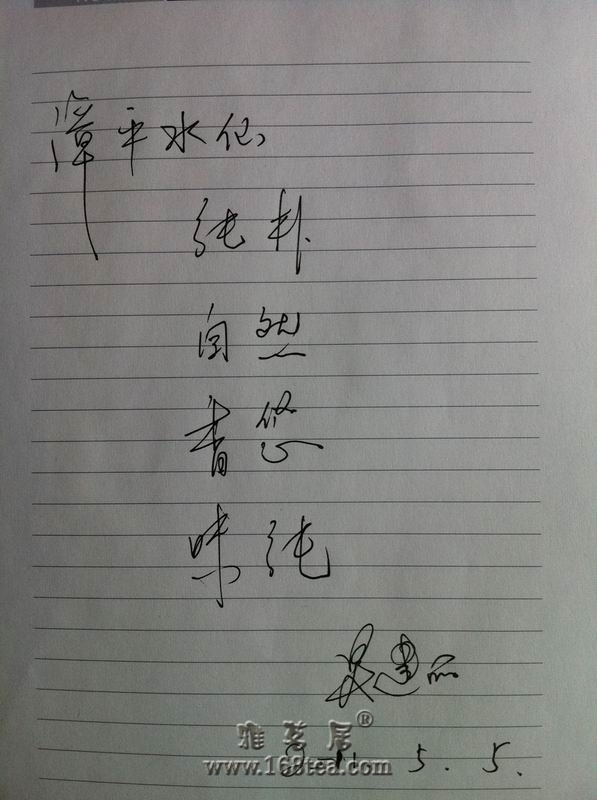 漳平水仙
纯朴
自然
香悠
味纯
吴建丽
雅茗居®
2011.5.5.
www.168tea.com